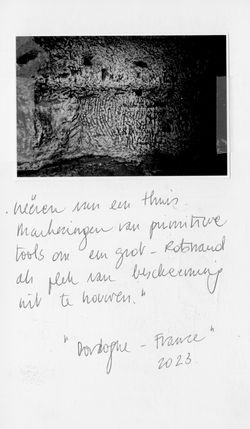 "Creëren van een thuis.
Markeringen van primitieve
tools om een grot - Rotswand
als plek van bescherming
uit te houwen."
"Dordogne - France"
2023